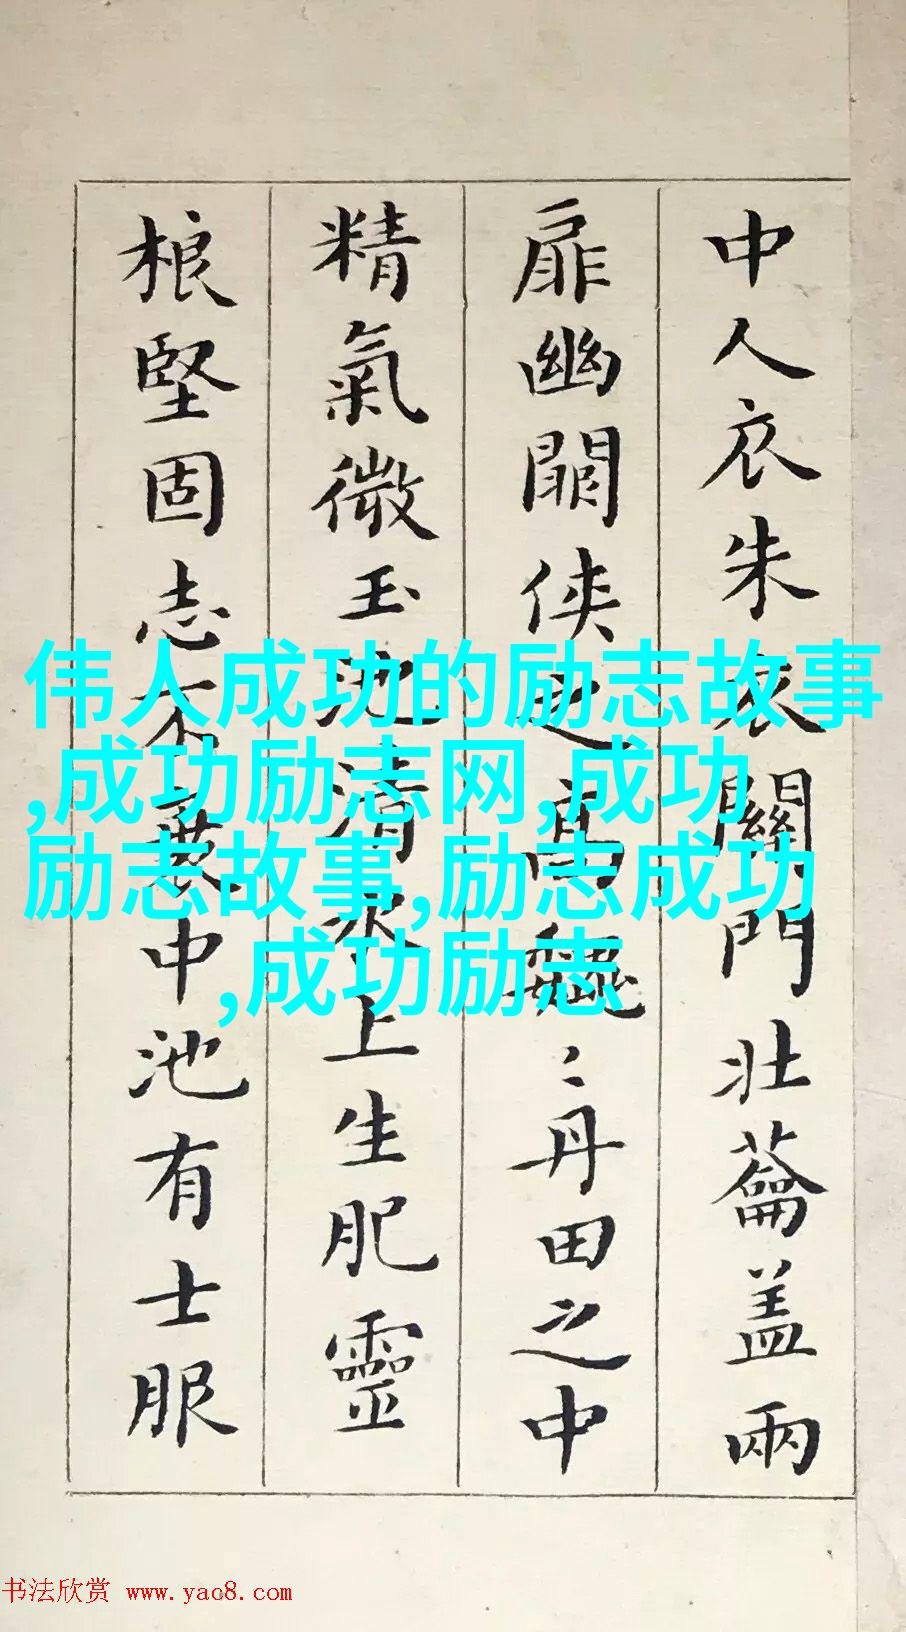 中人衣朱衣關門壯蘥盖兩
扉幽闕俠之高巍〻丹田之中
精氣微玉池清水上生肥靈
根堅固志不衰中池有士服
伟人成功的励志故事
,成功励志网,成功
励志故事,励志成功
,成功励志
书法欣赏 www.yac8.com